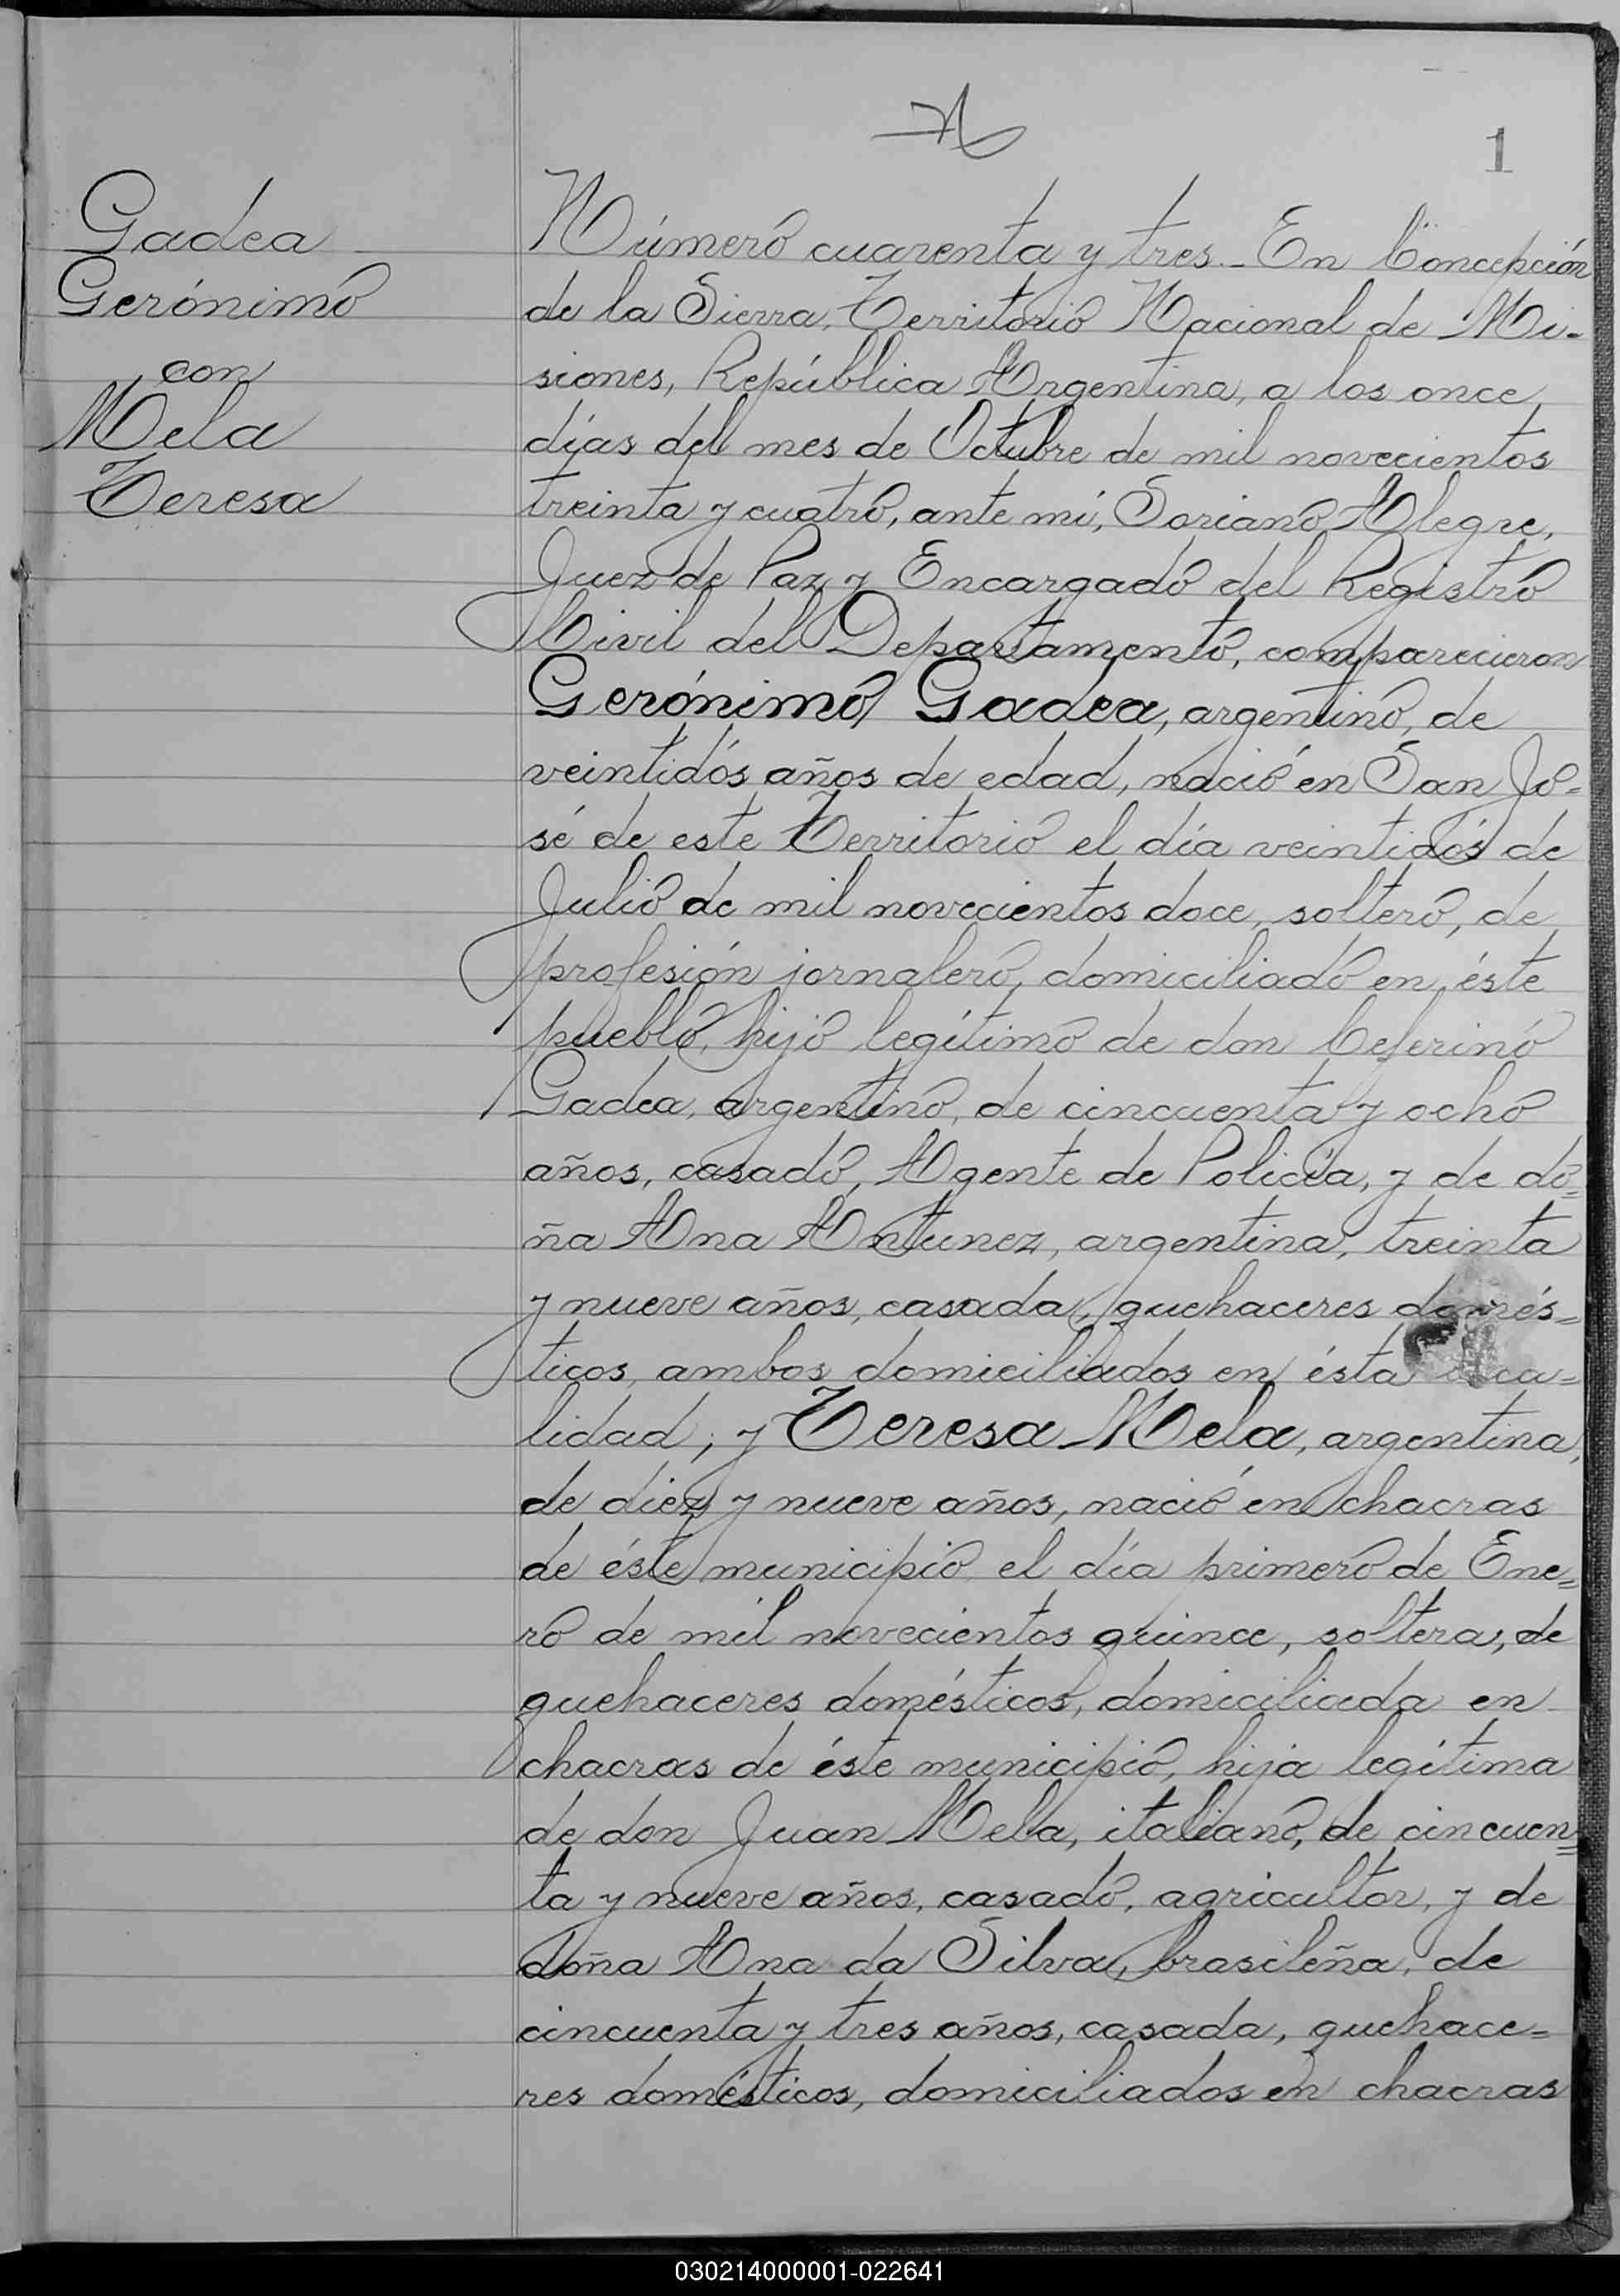 1
Gadea
Gerónimo
con
Mela
Teresa
Número cuarenta y tres.- En Concepción
de la Sierra, Territorio Nacional de Mi-
siones, República Argentina, a los once
días del mes de Octubre de mil novecientos
treinta y cuatro, ante mí, Soriano Alegre,
Juez de Paz y Encargado del Registro
Civil del Departamento, comparecieron
Gerónimo Gadea, argentino, de
veintidós años de edad, nació en San Jo=
sé de este Territorio el día veintidós de
Julio de mil novecientos doce, soltero, de
profesión jornalero, domiciliado en éste
pueblo, hijo legítimo de don Ceferino
Gadea, argentino, de cincuenta y ocho
años, casado, Agente de Policía, y de do=
ña Ana Antunez, argentina, treinta
y nueve años, casada, quehaceres domés=
ticos, ambos domiciliados en ésta loca=
lidad; y Teresa Mela, argentina,
de diez y nueve años, nació en chacras
de éste municipio el día primero de Ene=
ro de mil novecientos quince, soltera, de
quehaceres domésticos, domiciliada en
chacras de éste municipio, hija legítima
de don Juan Mela, italiano, de cincuen=
ta y nueve años, casado, agricultor, y de
doña Ana da Silva, brasileña, de
cincuenta y tres años, casada, quehace=
res domésticos, domiciliados en chacras
030214000001-022641